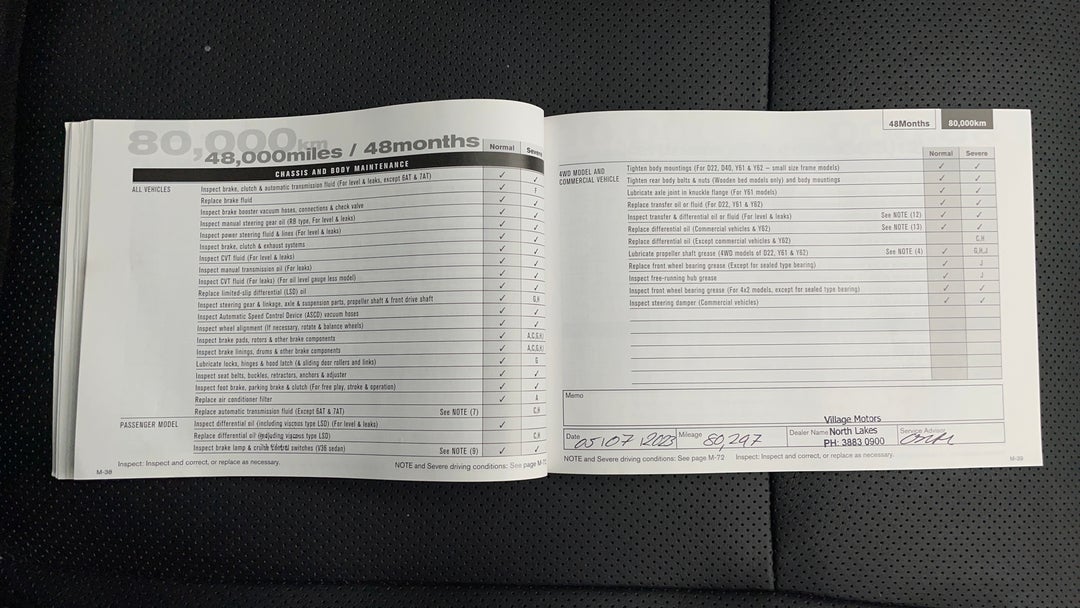 80,000km
48,000miles / 48months
Normal Severe
CHASSIS AND BODY MAINTENANCE
ALL VEHICLES
Inspect brake, clutch & automatic transmission fluid (For level & leaks, except 6AT & 7AT) ✓ ✓
Replace brake fluid ✓ F
Inspect brake booster vacuum hoses, connections & check valve ✓ ✓
Inspect manual steering gear oil (RB type, For level & leaks) ✓ ✓
Inspect power steering fluid & lines (For level & leaks) ✓ ✓
Inspect brake, clutch & exhaust systems ✓ ✓
Inspect CVT fluid (For level & leaks) ✓ ✓
Inspect manual transmission oil (For leaks) ✓ ✓
Inspect CVT fluid (For leaks) (For oil level gauge less model) ✓ ✓
Replace limited-slip differential (LSD) oil ✓ ✓
Inspect steering gear & linkage, axle & suspension parts, propeller shaft & front drive shaft ✓ G,H
Inspect Automatic Speed Control Device (ASCD) vacuum hoses ✓ ✓
Inspect wheel alignment (If necessary, rotate & balance wheels) ✓ ✓
Inspect brake pads, rotors & other brake components ✓ A,C,G,H,I
Inspect brake linings, drums & other brake components ✓ A,C,G,H,I
Lubricate locks, hinges & hood latch (& sliding door rollers and links) ✓ G
Inspect seat belts, buckles, retractors, anchors & adjuster ✓ ✓
Inspect foot brake, parking brake & clutch (For free play, stroke & operation) ✓ ✓
Replace air conditioner filter ✓ A
Replace automatic transmission fluid (Except 6AT & 7AT) See NOTE (7) C,H
PASSENGER MODEL
Inspect differential oil (including viscous type LSD) (For level & leaks) ✓
Replace differential oil (including viscous type LSD) C,H
Inspect brake lamp & cruise control switches (V36 sedan) See NOTE (9) ✓ ✓
Inspect: Inspect and correct, or replace as necessary.
NOTE and Severe driving conditions: See page M-72
M-38
48Months 80,000km
Normal Severe
4WD MODEL AND
COMMERCIAL VEHICLE
Tighten body mountings (For D22, D40, Y61 & Y62 – small size frame models) ✓ ✓
Tighten rear body bolts & nuts (Wooden bed models only) and body mountings ✓ ✓
Lubricate axle joint in knuckle flange (For Y61 models) ✓ ✓
Replace transfer oil or fluid (For D22, Y61 & Y62) ✓ ✓
Inspect transfer & differential oil or fluid (For level & leaks) See NOTE (12) ✓ ✓
Replace differential oil (Commercial vehicles & Y62) See NOTE (13) ✓ ✓
Replace differential oil (Except commercial vehicles & Y62) C,H
Lubricate propeller shaft grease (4WD models of D22, Y61 & Y62) See NOTE (4) ✓ G,H,J
Replace front wheel bearing grease (Except for sealed type bearing) ✓ J
Inspect free-running hub grease ✓ J
Inspect front wheel bearing grease (For 4x2 models, except for sealed type bearing) ✓ ✓
Inspect steering damper (Commercial vehicles) ✓ ✓
Memo
Village Motors
North Lakes
PH: 3883 0900
Date 05/07/2023 Mileage 80,297 Dealer Name Service Advisor
NOTE and Severe driving conditions: See page M-72 Inspect: Inspect and correct, or replace as necessary.
M-39